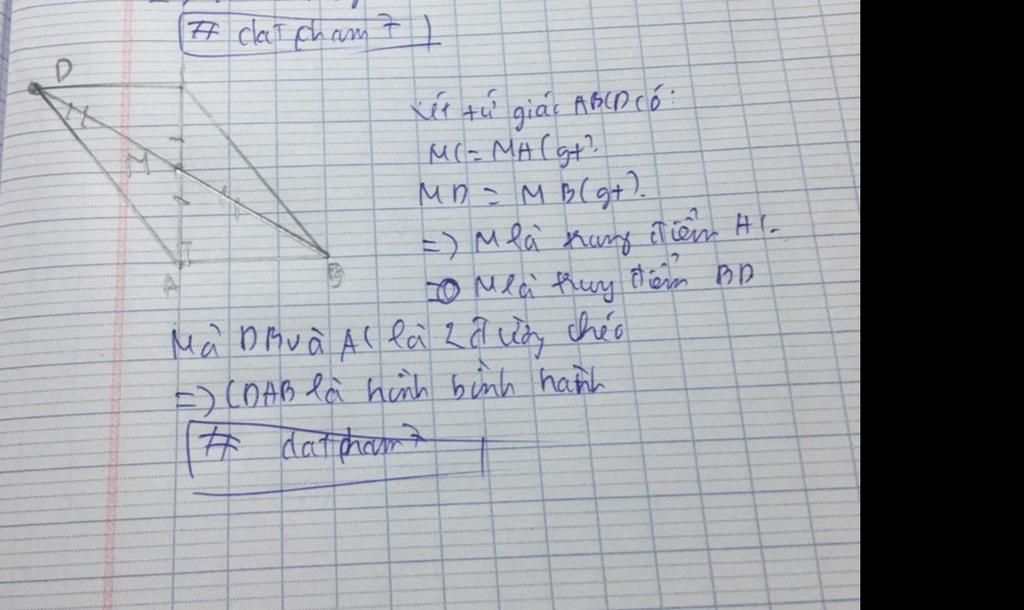 # datpham7
D
Xét tứ giác ABCD có:
MC = MA (gt).
M
MD = MB (gt).
=> M là trung điểm AC.
=> M là trung điểm BD
A
B
Mà DB và AC là 2 đường chéo
=> CDAB là hình bình hành
# datpham7